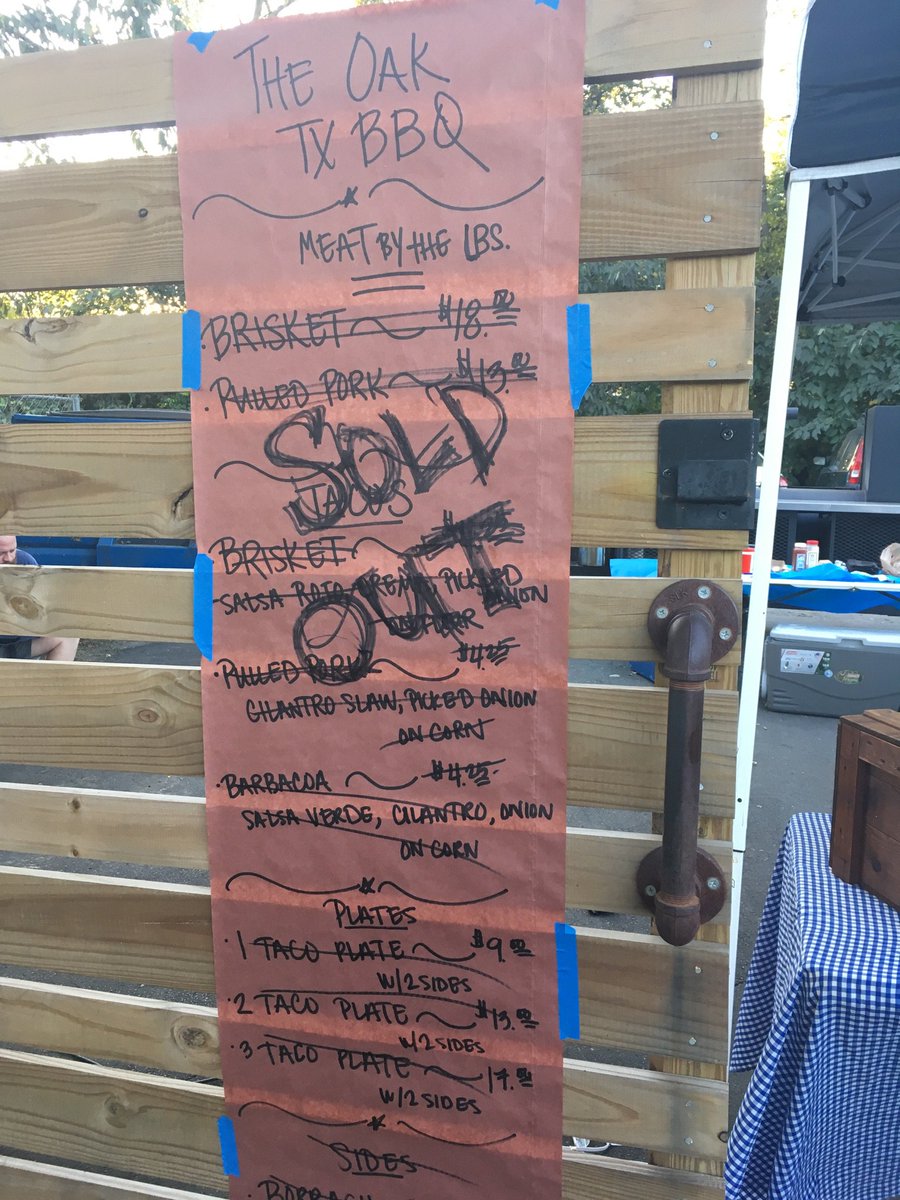 THE OAK
TX BBQ
MEAT BY THE LBS.
· BRISKET $18.00
· PULLED PORK $13.00
SOLD
TACOS
OUT
· BRISKET
SALSA ROJO, CREMA, PICKLED
ONION
ON FLOUR
· PULLED PORK $4.25
CILANTRO SLAW, PICKED ONION
ON CORN
· BARBACOA $4.25
SALSA VERDE, CILANTRO, ONION
ON CORN
PLATES
· 1 TACO PLATE $9.00
W/2 SIDES
· 2 TACO PLATE $13.00
W/2 SIDES
· 3 TACO PLATE 17.00
W/2 SIDES
SIDES